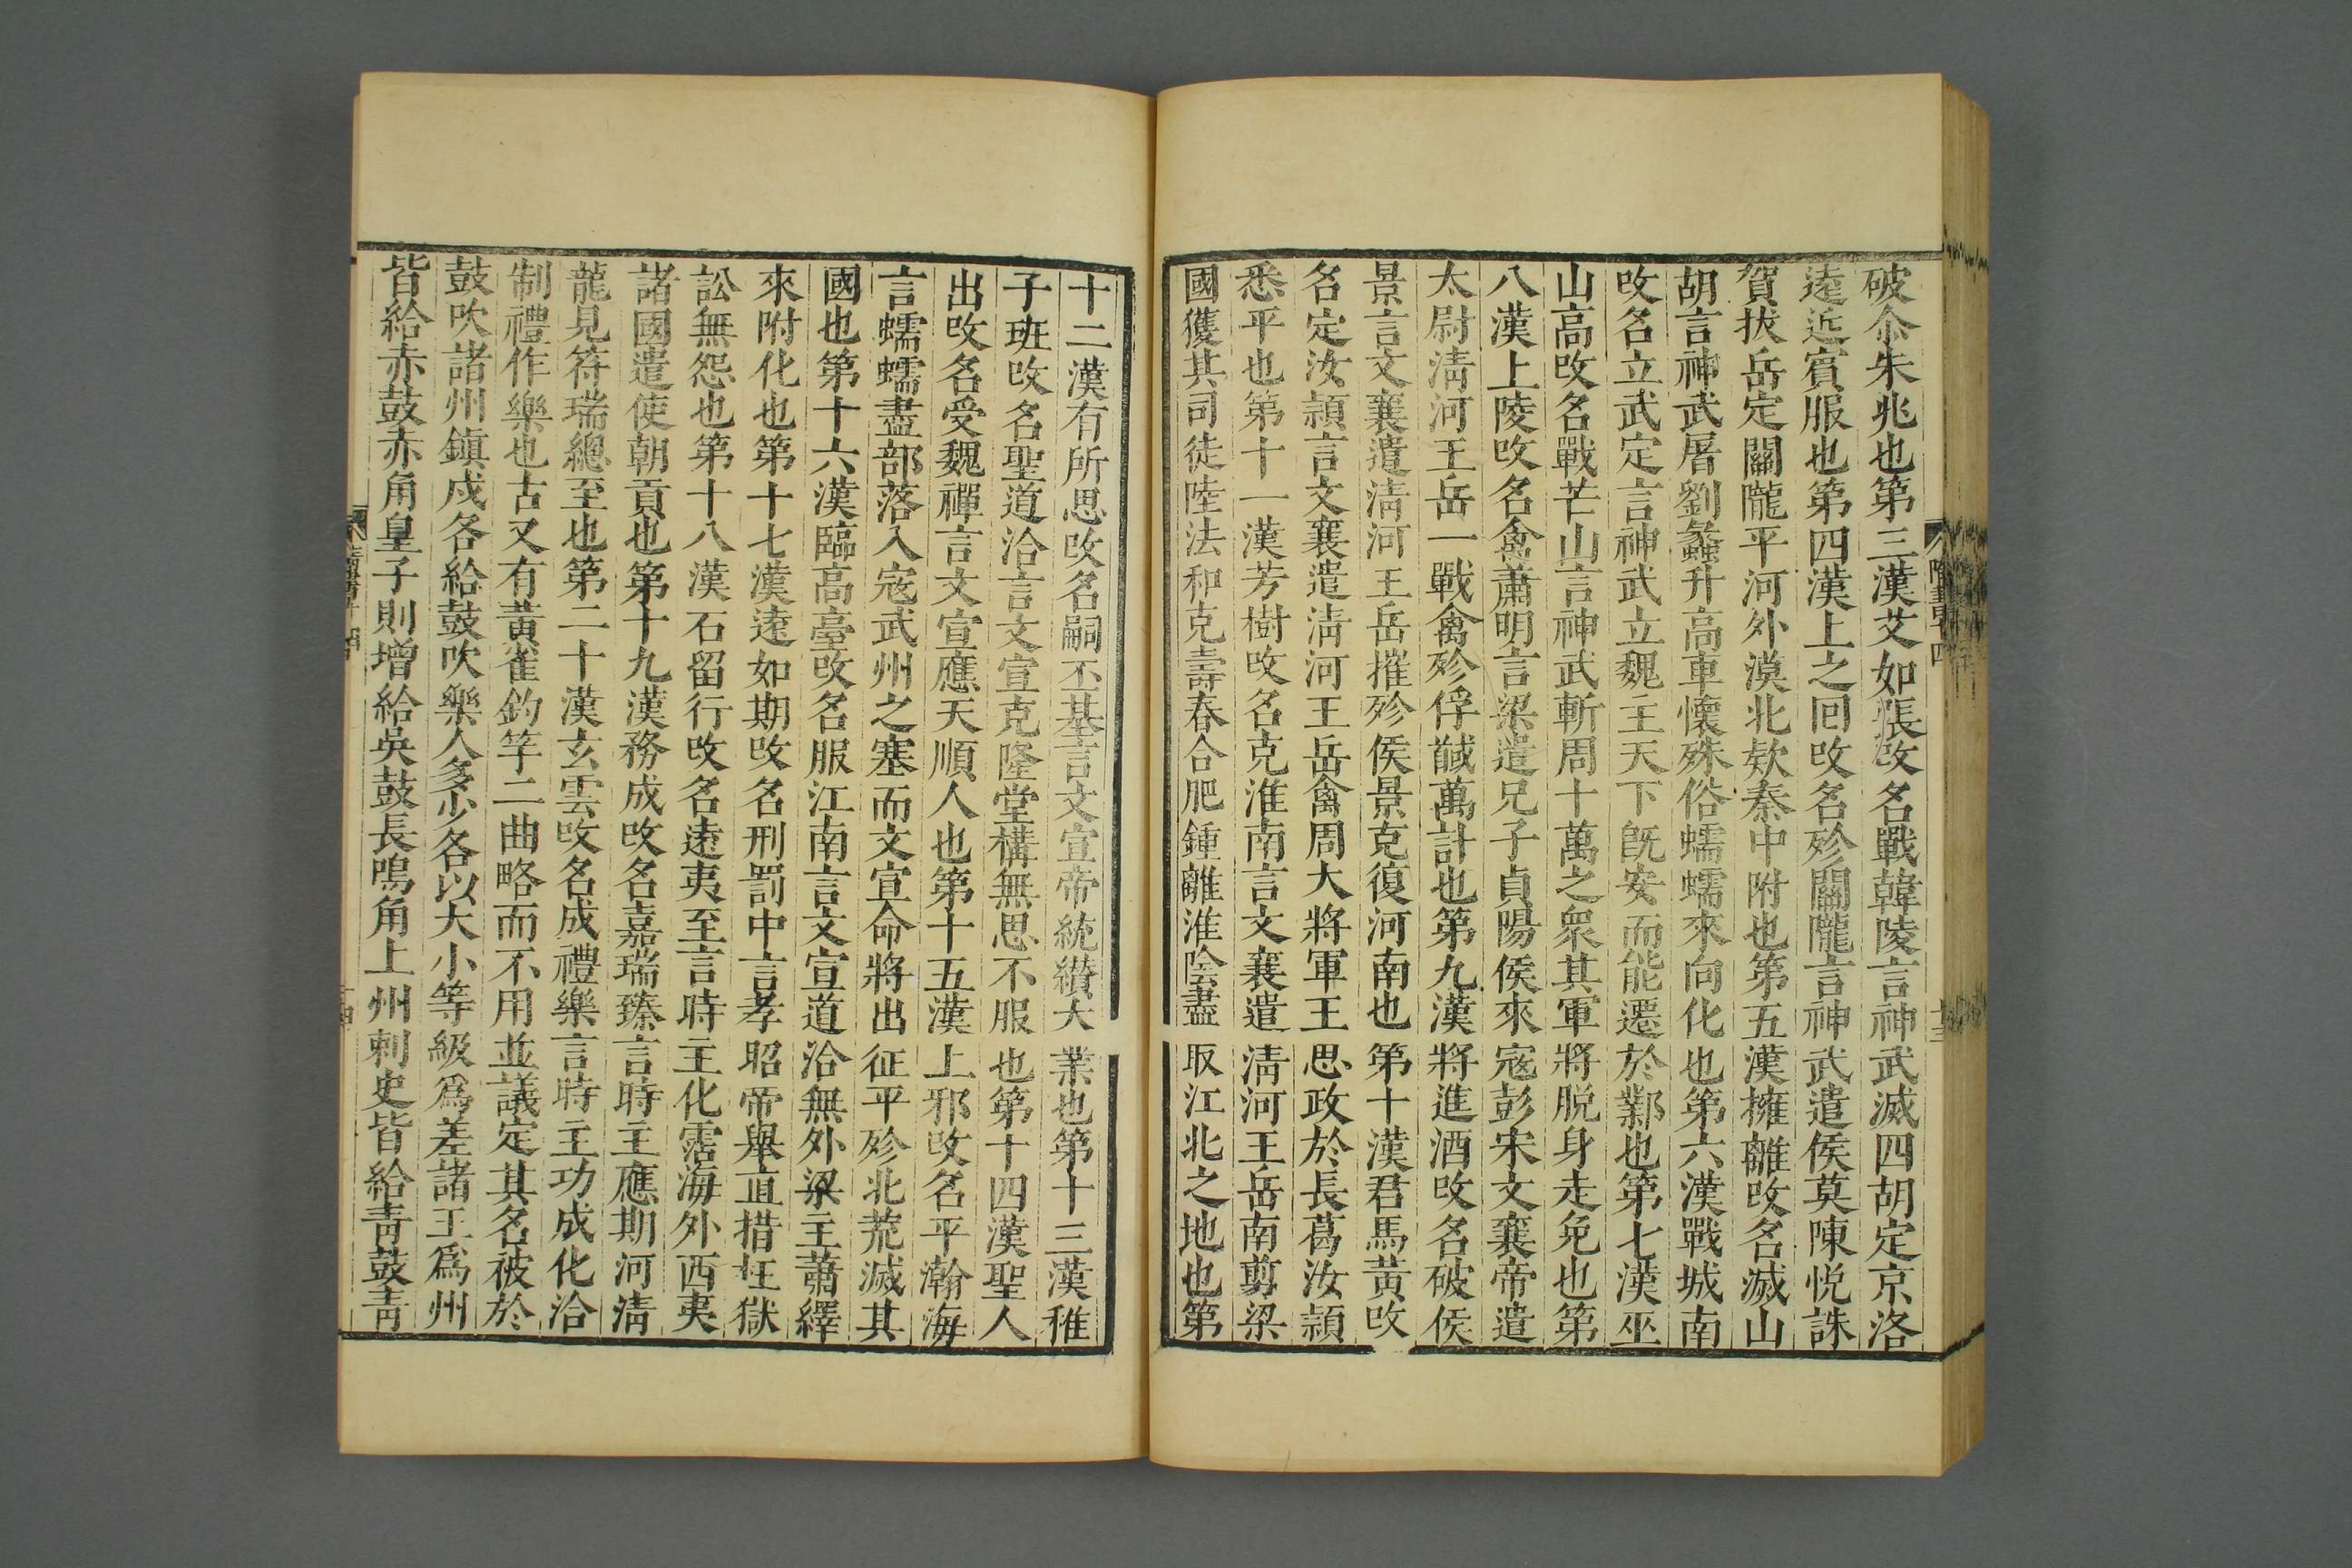 破尒朱兆也第三漢艾如張改名戰韓陵言神武滅四胡定京洛
遠近賓服也第四漢上之回改名殄關隴言神武遣侯莫陳悅誅
賀拔岳定關隴平河外漠北款秦中附也第五漢擁離改名滅山
胡言神武屠劉蠡升高車懷殊俗蠕蠕來向化也第六漢戰城南
改名立武定言神武立魏主天下旣安而能遷於鄴也第七漢巫
山高改名戰芒山言神武斬周十萬之衆其軍將脫身走免也第
八漢上陵改名禽蕭明言梁遣兄子貞陽侯來寇彭宋文襄帝遣
太尉淸河王岳一戰禽殄俘馘萬計也第九漢將進酒改名破侯
景言文襄遣淸河王岳摧殄侯景克復河南也第十漢君馬黃改
名定汝頴言文襄遣淸河王岳禽周大將軍王思政於長葛汝頴
悉平也第十一漢芳樹改名克淮南言文襄遣淸河王岳南剪梁
國獲其司徒陸法和克壽春合肥鍾離淮陰盡取江北之地也第
十二漢有所思改名嗣丕基言文宣帝統纉大業也第十三漢稚
子班改名聖道洽言文宣克隆堂構無思不服也第十四漢聖人
出改名受魏禪言文宣應天順人也第十五漢上邪改名平瀚海
言蠕蠕盡部落入寇武州之塞而文宣命將出征平殄北荒滅其
國也第十六漢臨高臺改名服江南言文宣道洽無外梁主蕭繹
來附化也第十七漢遠如期改名刑罰中言孝昭帝舉直措枉獄
訟無怨也第十八漢石留行改名遠夷至言時主化霑海外西夷
諸國遣使朝貢也第十九漢務成改名嘉瑞臻言時主應期河淸
龍見符瑞總至也第二十漢玄雲改名成禮樂言時主功成化洽
制禮作樂也古又有黃雀釣竿二曲略而不用並議定其名被於
鼓吹諸州鎮戍各給鼓吹樂人多少各以大小等級爲差諸王爲州
皆給赤鼓赤角皇子則增給吳鼓長鳴角上州刺史皆給靑鼓靑